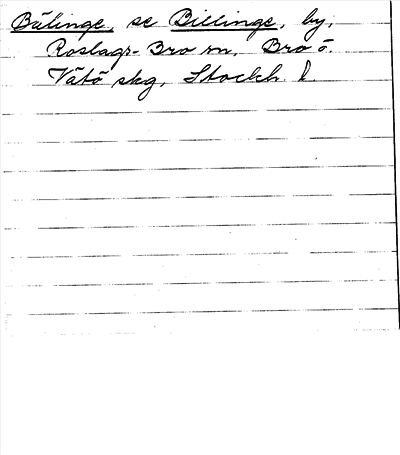 Bälinge, se Billinge, by,
Roslags-Bro sn, Bro ö.
Vätö skg, Stockh. l